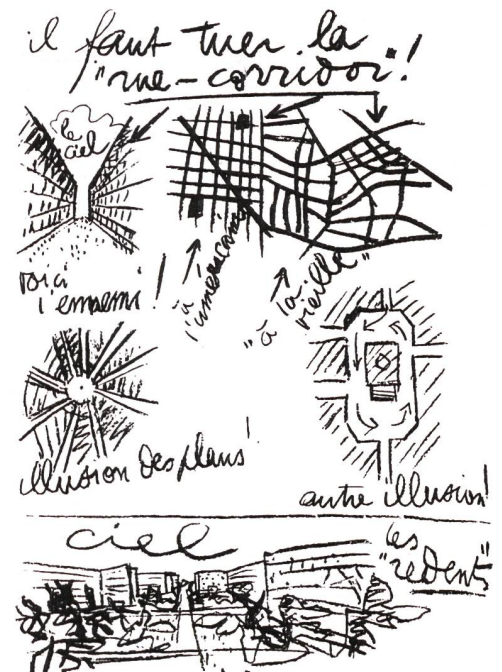 il faut tuer la
"rue-corridor"!
le
ciel
voici
l'ennemi!
à
l'américaine
"à la
vieille"
illusion des plans!
autre illusion!
ciel
les
"redents"